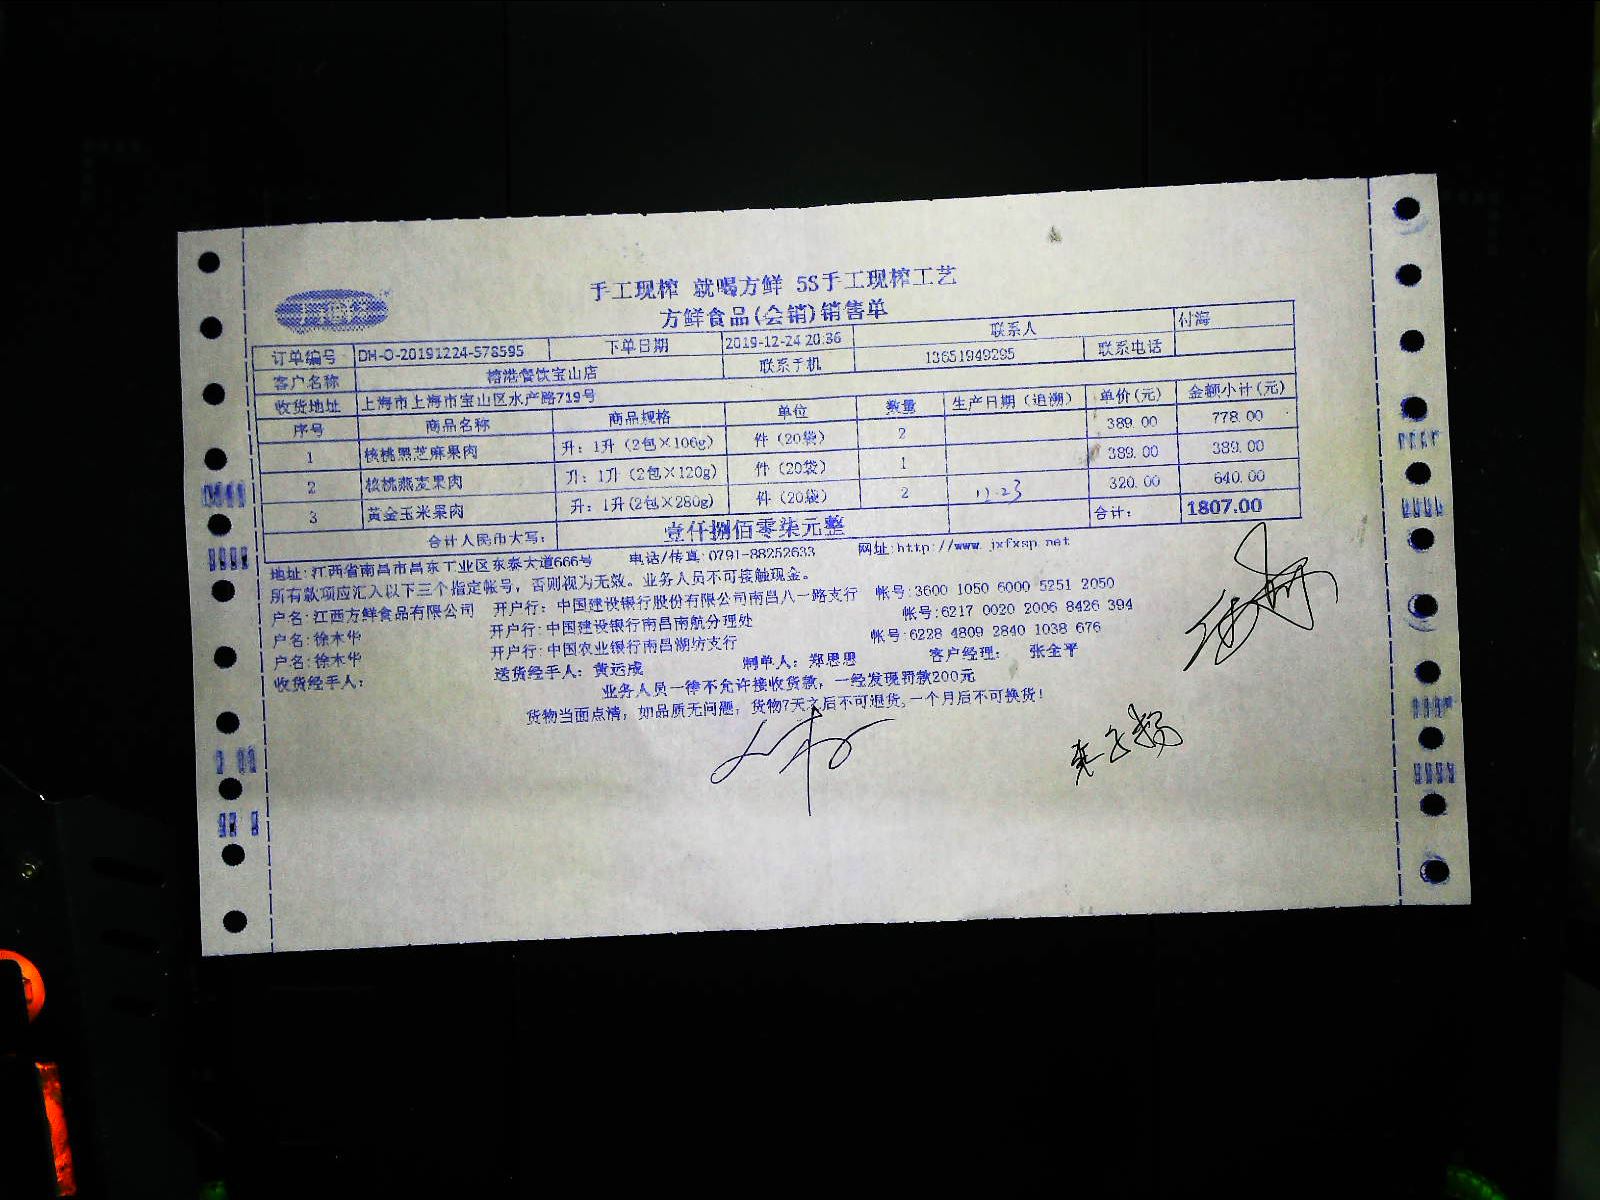 手工现榨 就喝方鲜 5S手工现榨工艺
方鲜食品(会销)销售单
订单编号 DH-O-20191224-578595 下单日期 2019-12-24 20:36 联系人 付海
客户名称 榕港餐饮宝山店 联系手机 13651949295 联系电话
收货地址 上海市上海市宝山区水产路719号
序号 商品名称 商品规格 单位 数量 生产日期（追溯） 单价(元) 金额小计(元)
1 核桃黑芝麻果肉 升：1升（2包×106g） 件（20袋） 2 389.00 778.00
2 核桃燕麦果肉 升：1升（2包×120g） 件（20袋） 1 389.00 389.00
3 黄金玉米果肉 升：1升(2包×280g) 件（20袋） 2 12.23 320.00 640.00
合计人民币大写： 壹仟捌佰零柒元整 合计： 1807.00
地址:江西省南昌市昌东工业区东泰大道666号 电话/传真:0791-88252633 网址:http://www.jxfxsp.net
所有款项应汇入以下三个指定帐号，否则视为无效。业务人员不可接触现金。
户名:江西方鲜食品有限公司 开户行：中国建设银行股份有限公司南昌八一路支行 帐号:3600 1050 6000 5251 2050
户名:徐木华 开户行:中国建设银行南昌南航分理处 帐号:6217 0020 2006 8426 394
户名:徐木华 开户行:中国农业银行南昌湖坊支行 帐号:6228 4809 2840 1038 676
收货经手人： 送货经手人：黄运成 制单人：郑思思 客户经理： 张全平
业务人员一律不允许接收货款，一经发现罚款200元
货物当面点清，如品质无问题，货物7天之后不可退货,一个月后不可换货！